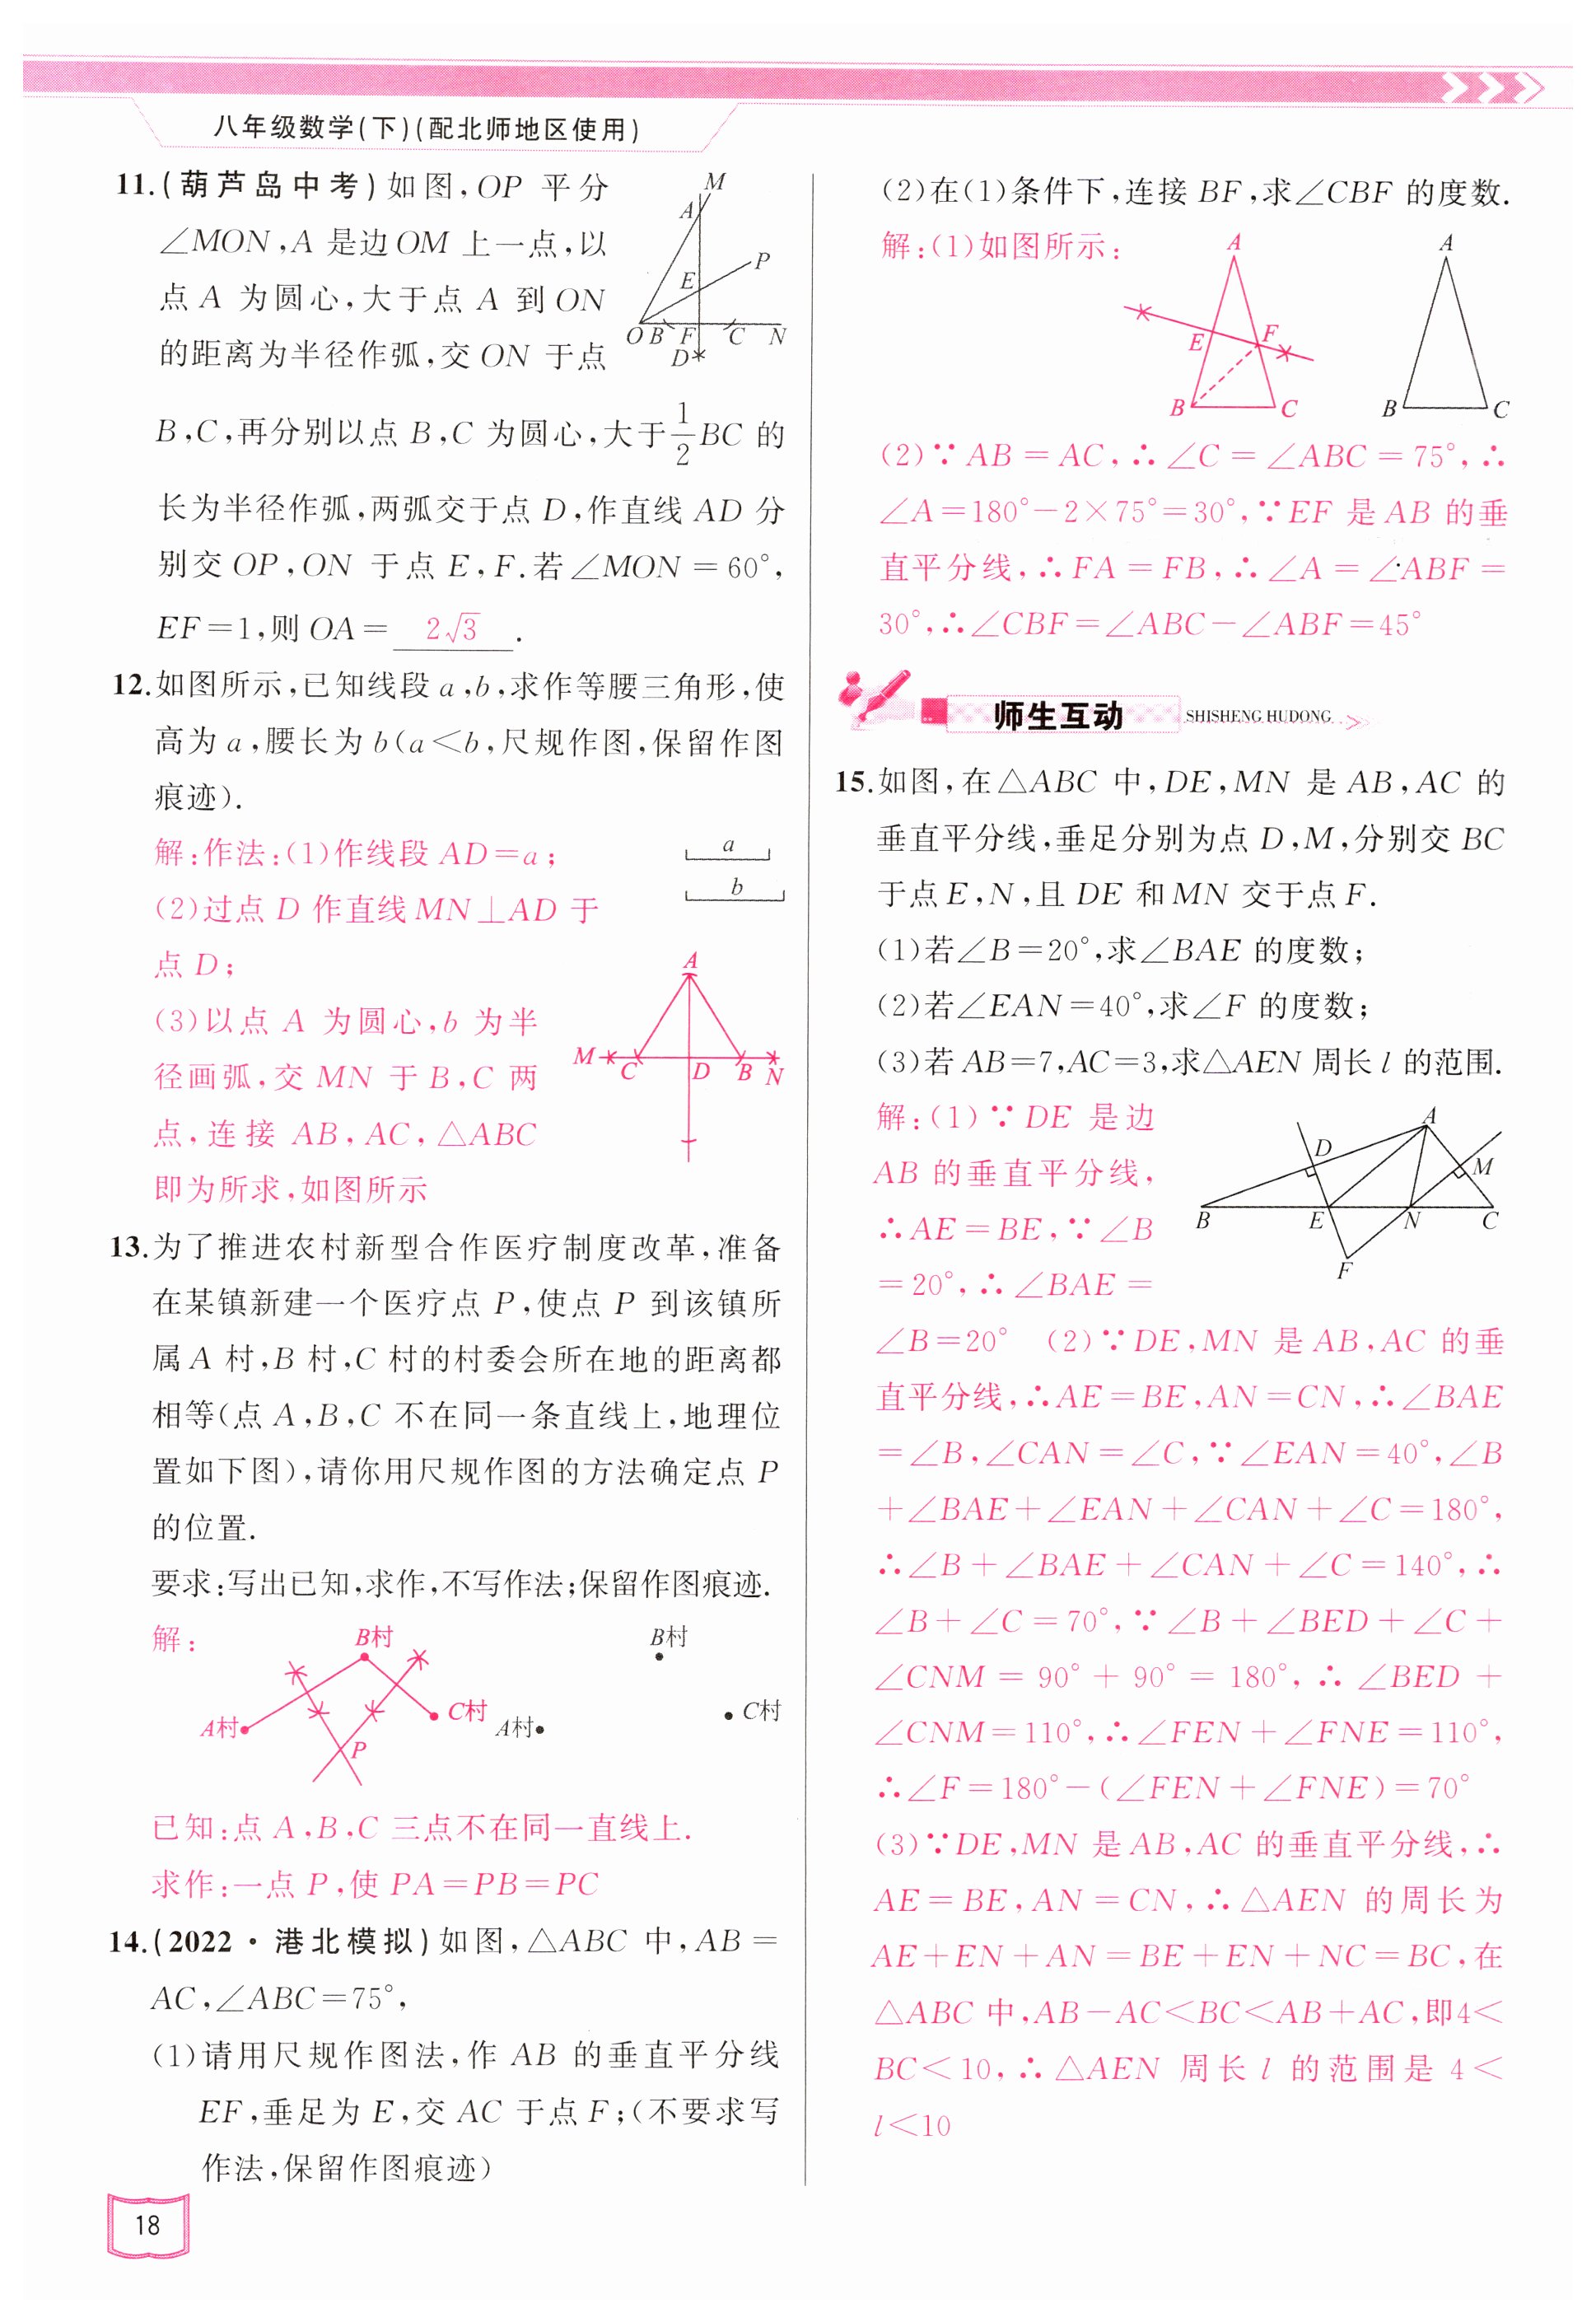 八年级数学(下)(配北师地区使用)
11.(葫芦岛中考)如图,OP 平分
∠MON,A 是边OM 上一点,以
点 A 为圆心,大于点 A 到 ON
的距离为半径作弧,交 ON 于点
B,C,再分别以点 B,C 为圆心,大于1/2BC 的
长为半径作弧,两弧交于点 D,作直线 AD 分
别交 OP,ON 于点 E,F.若∠MON=60°,
EF=1,则 OA= 2√3 .
M
A
P
E
O B F C N
D
12.如图所示,已知线段 a,b,求作等腰三角形,使
高为 a,腰长为 b(a<b,尺规作图,保留作图
痕迹).
解:作法:(1)作线段 AD=a;
(2)过点 D 作直线 MN⊥AD 于
点 D;
(3)以点 A 为圆心,b 为半
径画弧,交 MN 于 B,C 两
点,连接 AB,AC,△ABC
即为所求,如图所示
a
b
A
M C D B N
13.为了推进农村新型合作医疗制度改革,准备
在某镇新建一个医疗点 P,使点 P 到该镇所
属 A 村,B 村,C 村的村委会所在地的距离都
相等(点 A,B,C 不在同一条直线上,地理位
置如下图),请你用尺规作图的方法确定点 P
的位置.
要求:写出已知,求作,不写作法;保留作图痕迹.
解:
B村
A村
C村
P
B村
A村
C村
已知:点 A,B,C 三点不在同一直线上.
求作:一点 P,使 PA=PB=PC
14.(2022·港北模拟)如图,△ABC 中,AB=
AC,∠ABC=75°,
(1)请用尺规作图法,作 AB 的垂直平分线
EF,垂足为 E,交 AC 于点 F;(不要求写
作法,保留作图痕迹)
18
(2)在(1)条件下,连接 BF,求∠CBF 的度数.
解:(1)如图所示:
A
E F
B C
A
B C
(2)∵AB=AC,∴∠C=∠ABC=75°,∴
∠A=180°-2×75°=30°,∵EF 是 AB 的垂
直平分线,∴FA=FB,∴∠A=∠ABF=
30°,∴∠CBF=∠ABC-∠ABF=45°
师生互动 SHISHENG HUDONG
15.如图,在△ABC 中,DE,MN 是 AB,AC 的
垂直平分线,垂足分别为点 D,M,分别交 BC
于点 E,N,且 DE 和 MN 交于点 F.
(1)若∠B=20°,求∠BAE 的度数;
(2)若∠EAN=40°,求∠F 的度数;
(3)若 AB=7,AC=3,求△AEN 周长 l 的范围.
解:(1)∵DE 是边
AB 的垂直平分线,
∴AE=BE,∵∠B
=20°,∴∠BAE=
A
D
M
B E N C
F
∠B=20° (2)∵DE,MN 是 AB,AC 的垂
直平分线,∴AE=BE,AN=CN,∴∠BAE
=∠B,∠CAN=∠C,∵∠EAN=40°,∠B
+∠BAE+∠EAN+∠CAN+∠C=180°,
∴∠B+∠BAE+∠CAN+∠C=140°,∴
∠B+∠C=70°,∵∠B+∠BED+∠C+
∠CNM=90°+90°=180°,∴∠BED+
∠CNM=110°,∴∠FEN+∠FNE=110°,
∴∠F=180°-(∠FEN+∠FNE)=70°
(3)∵DE,MN 是 AB,AC 的垂直平分线,∴
AE=BE,AN=CN,∴△AEN 的周长为
AE+EN+AN=BE+EN+NC=BC,在
△ABC 中,AB-AC<BC<AB+AC,即4<
BC<10,∴△AEN 周长 l 的范围是 4<
l<10